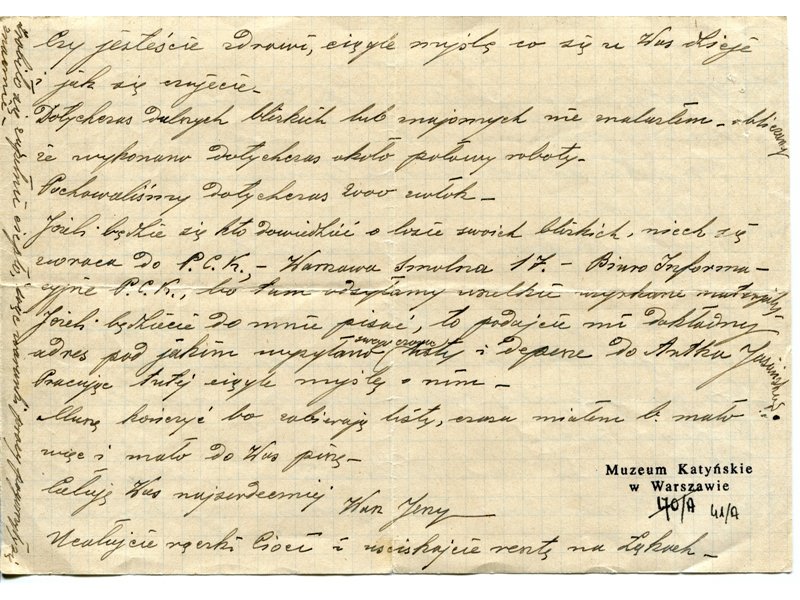 Czy jesteście zdrowi, ciągle myślę co się u Was dzieje
i jak się czujecie –
Dotychczas dalszych bliskich lub znajomych nie znalazłem – obliczamy
że wykonano dotychczas około połowy roboty –
Pochowaliśmy dotychczas 2000 zwłok –
Jeżeli będzie się kto dowiedzieć o losie swoich bliskich, niech się
zwraca do P.C.K., – Warszawa Smolna 17. – Biuro Informa–
cyjne P.C.K., bo tam odsyłamy wszelkie uzyskane materjały,
Jeżeli będziecie do mnie pisać, to podajcie mi dokładny
adres pod jakim wysyłano swego czasu listy i depesze do Antka Jasińskiego.
Pracując tutaj ciągle myślę o nim –
Muszę kończyć bo zabierają listy, czasu miałem b. mało
więc i mało do Was piszę –
Całuję Was najserdeczniej
Wasz Jerzy
Ucałujcie rączki Cioci i uściskajcie resztę na Łąkach –
Zrobiło się zupełnie ciepło, więc warunki pracy pogarszają się
znacznie –
Muzeum Katyńskie
w Warszawie
170/A 41/A